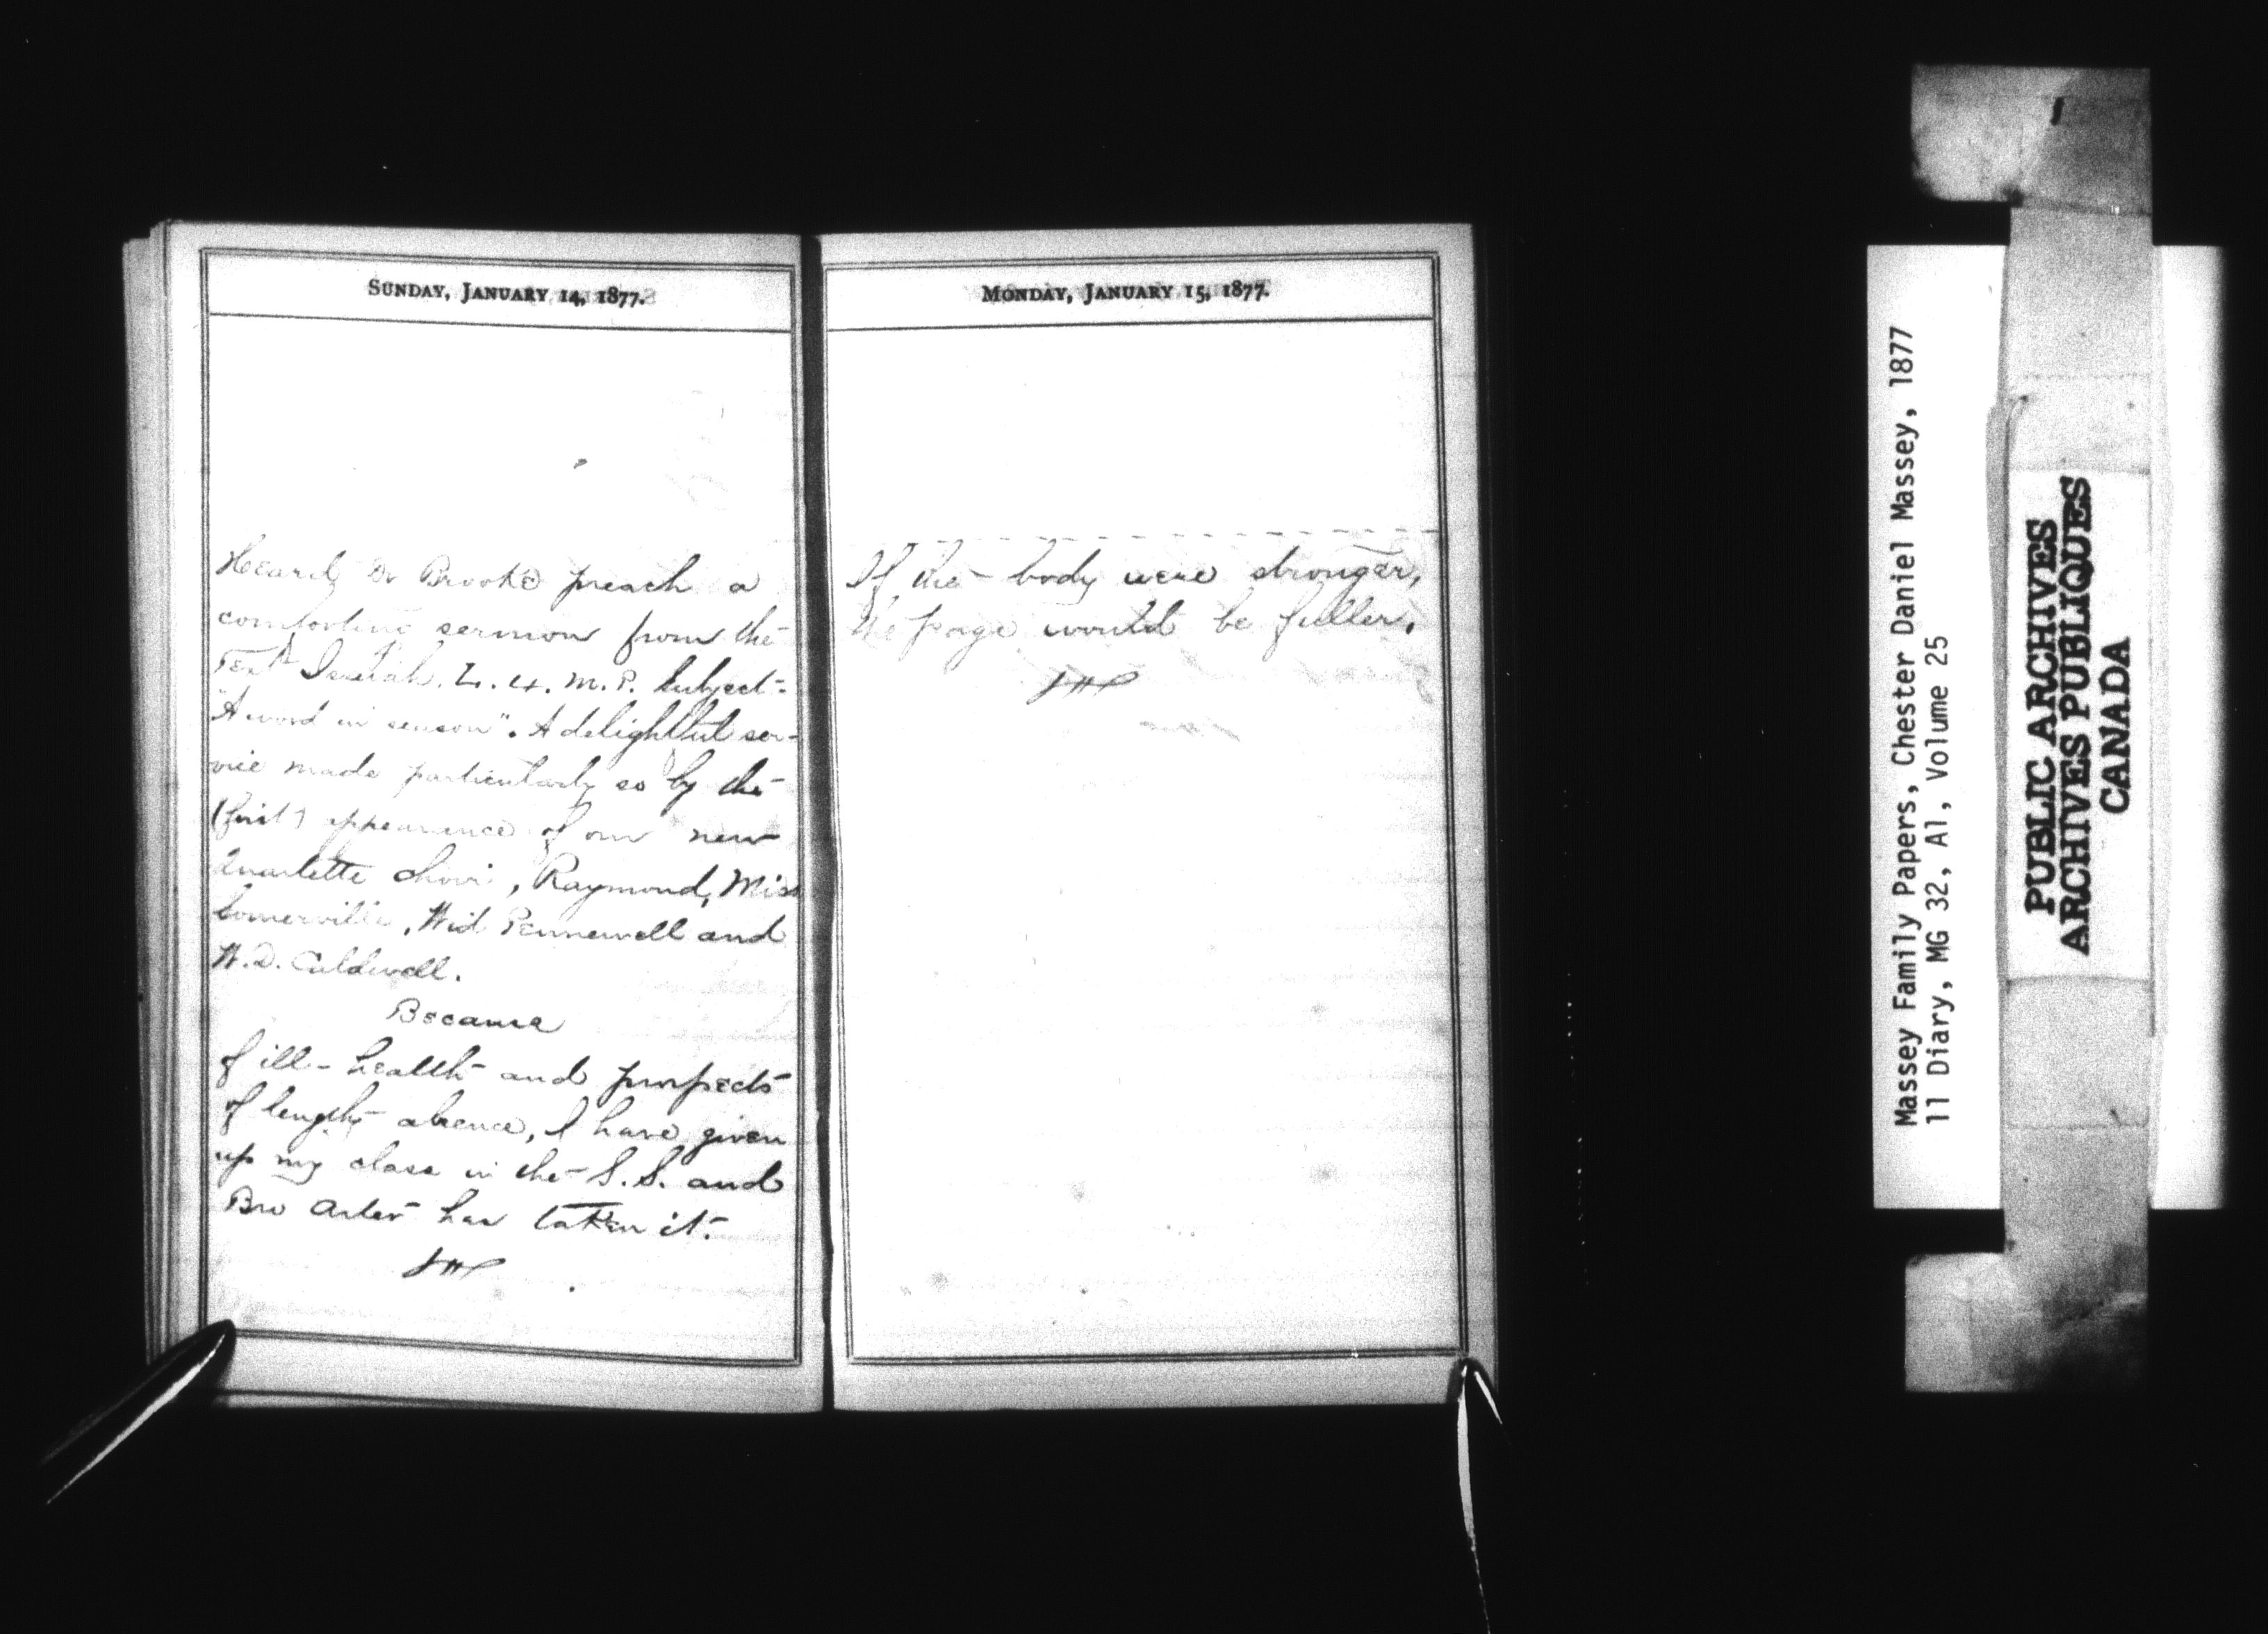 SUNDAY, JANUARY 14, 1877.
Heard Dr Brooke preach a
comforting sermon from the
Text Isaiah. L. 4. M.P. Subject:
"A word in season". A delightful ser-
vice made particularly so by the
(first) appearance of our new
Quartette choir, Raymond, Miss
Somerville, Wid Pennewell and
W.D. Caldwell.
Because
of ill-health and prospects
of lengthy absence, I have given
up my class in the S.S. and
Bro Arter has taken it.
MONDAY, JANUARY 15, 1877.
If the body were stronger,
the page would be fuller.
Massey Family Papers, Chester Daniel Massey, 1877
11 Diary, MG 32, A1, Volume 25
PUBLIC ARCHIVES
ARCHIVES PUBLIQUES
CANADA